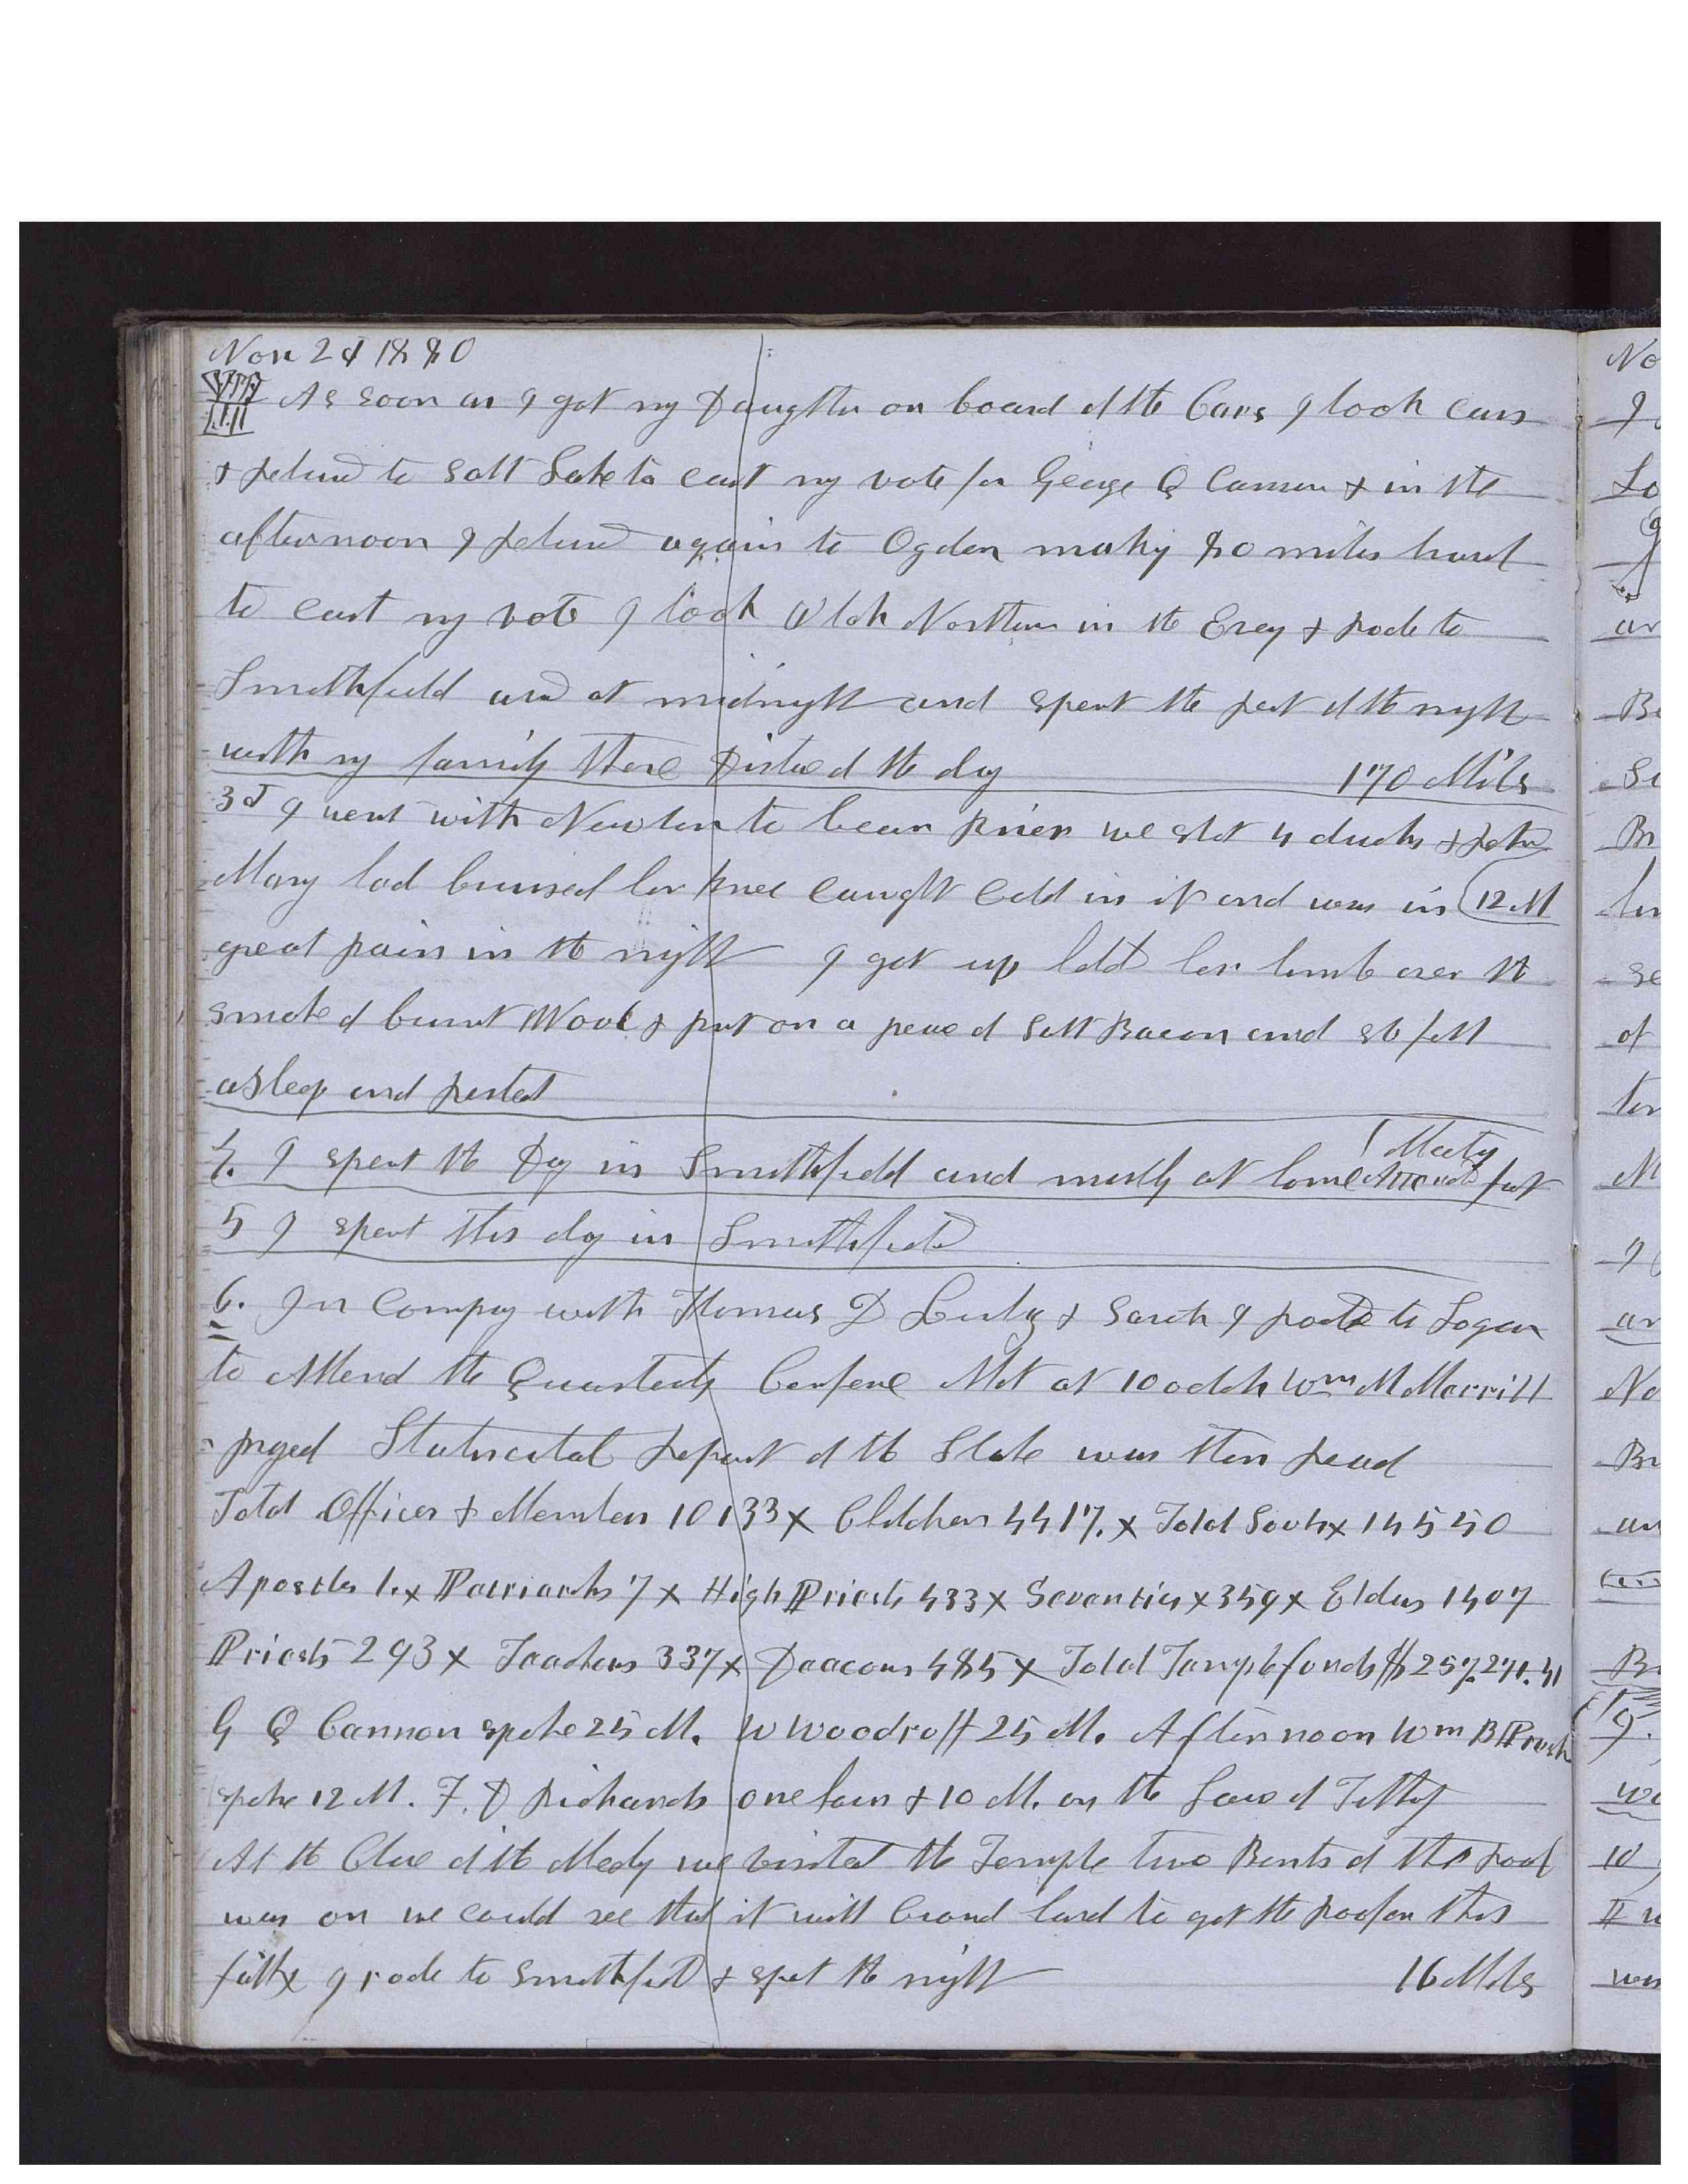 Nov 2d 1880
As soon as I got my Daughter on board of the Cars I took cars
& returnd to Salt Lake to cast my vote for George Q Cannon & in the
afternoon I returnd again to Ogden making 80 miles travel
to cast my vote I took Utah Northern in the Eveg & rode to
Smithfield arivd at midnight and spent the rest of the night
with my family there Distance of the day 170 Miles
3d I went with Newton to bear River we shot 4 ducks & retur
Mary had bruised her knee caught cold in it and was in 12 M
great pain in the night I got up held her limb over the
smoke of burnt Wool & put on a peace of Salt Bacon and she fell
asleep and rested
4. I spent the Day in Smithfield and mostly at home Attended fast
Meeting
5 I spent this day in Smithfield
6. In Company with Thomas D Leslig & Sarah I rode to Logan
to Attend the Quarterly Conferene Met at 10 oclok Wm M Merrill
prayed Statisceatal report of the Stake was then read
Total Officers & Members 10133 x Children 4417. x Total Souls x 14550
Apostles 1. x Patriarchs 7 x High Priests 433 x Seventies x 359 x Elders 1407
Priests 293 x Teachers 337 x Deacons 485 x Total Temple funds $257.271.41
G Q Cannon spoke 25 M. W Woodruff 25 M. Afternoon Wm B Prest
spoke 12 M. F. D Richards one hour & 10 M. on the Law of Tithing
At the Close of the Meeting we visited the Temple two Bents of the roof
was on we could see that it will Crowd hard to get the roof on this
fall x I rode to Smithfield & spet the night 16 Miles